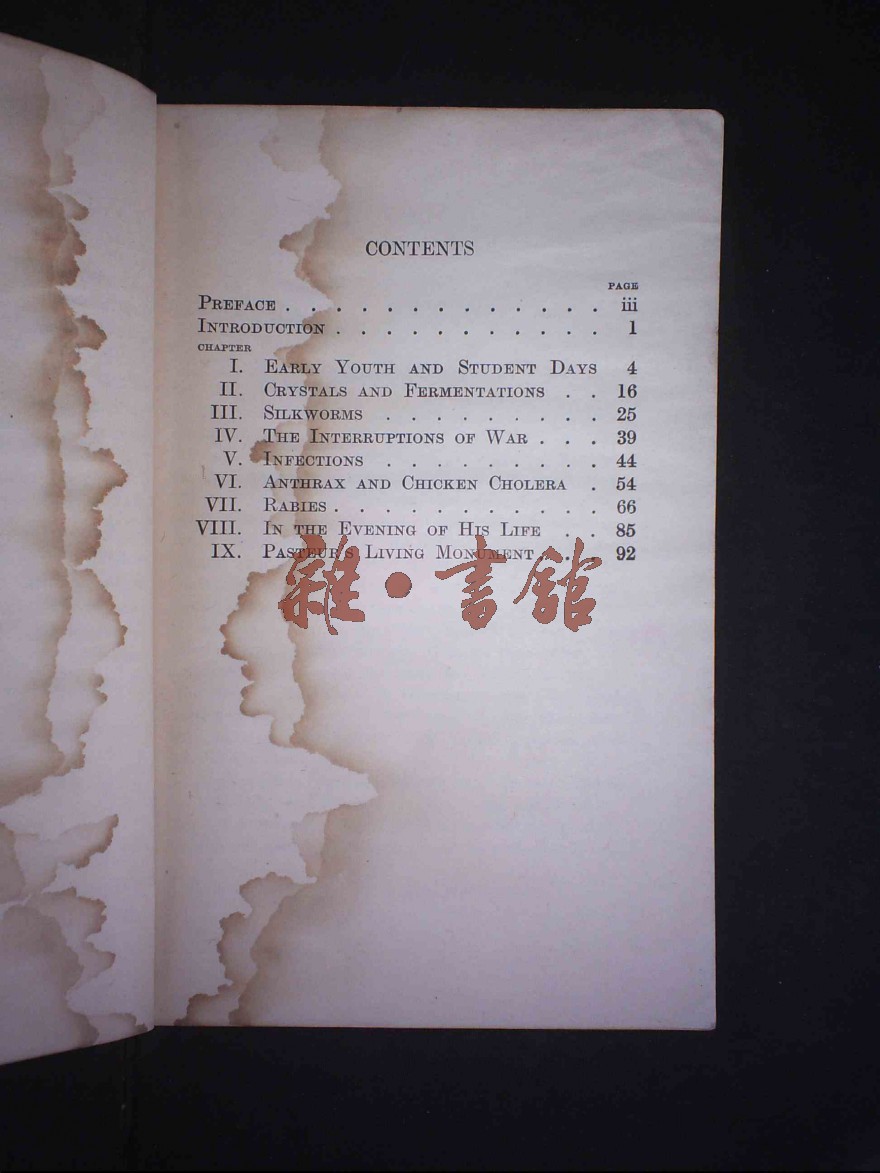 CONTENTS
PAGE
PREFACE . . . . . . . . . . . . . iii
INTRODUCTION . . . . . . . . . . . 1
CHAPTER
I. EARLY YOUTH AND STUDENT DAYS 4
II. CRYSTALS AND FERMENTATIONS . . 16
III. SILKWORMS . . . . . . . . 25
IV. THE INTERRUPTIONS OF WAR . . . 39
V. INFECTIONS . . . . . . . . . 44
VI. ANTHRAX AND CHICKEN CHOLERA . 54
VII. RABIES . . . . . . . . . . . 66
VIII. IN THE EVENING OF HIS LIFE . . 85
IX. PASTEUR'S LIVING MONUMENT . . . 92
雜·書館